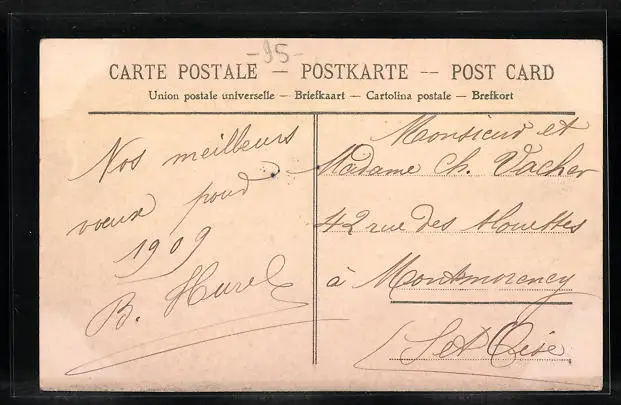 -95-
CARTE POSTALE — POSTKARTE -- POST CARD
Union postale universelle — Briefkaart — Cartolina postale — Brefkort
Nos meilleurs
voeux pour
1909
B. Hurel
Monsieur et
Madame Ch. Vacher
42 rue des Alouettes
à Montmorency
S et Oise